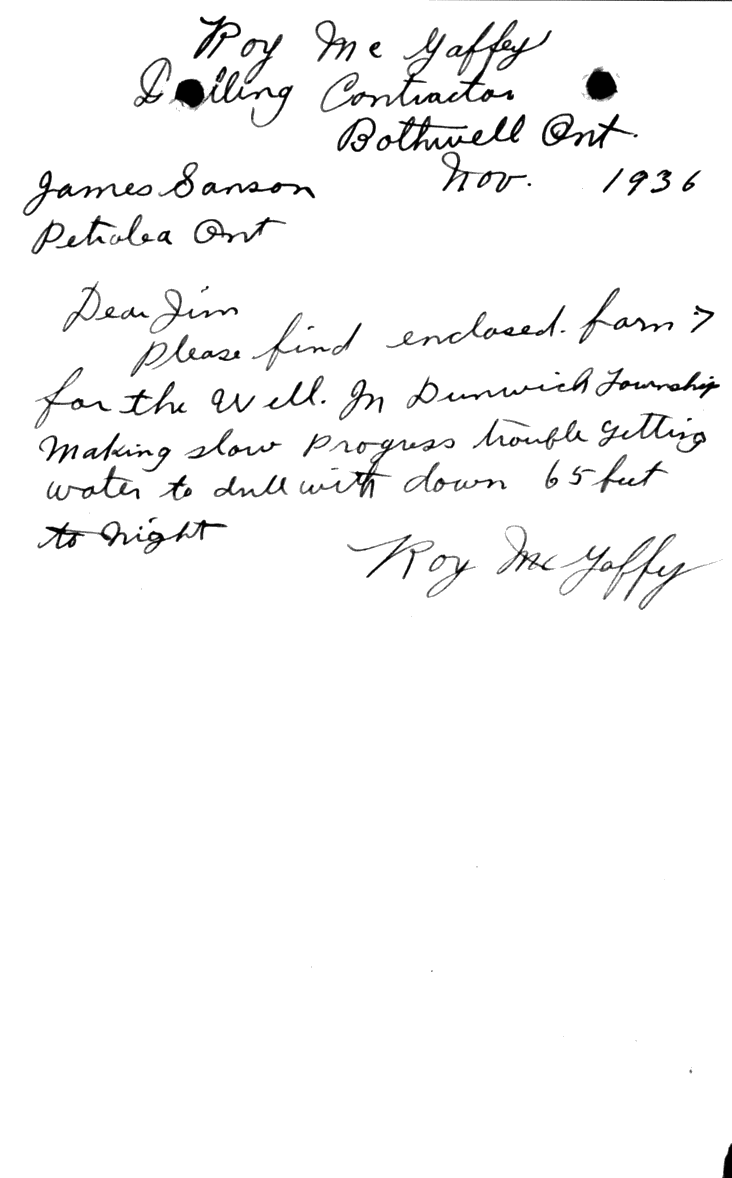 Roy Mc Gaffey
Drilling Contractor
Bothwell Ont.
Nov. 1936
James Sanson
Petrolea Ont
Dear Jim
Please find enclosed. form 7
for the Well. In Dunwich Township
Making slow progress trouble getting
water to drill with down 65 feet
to night
Roy Mc Gaffey